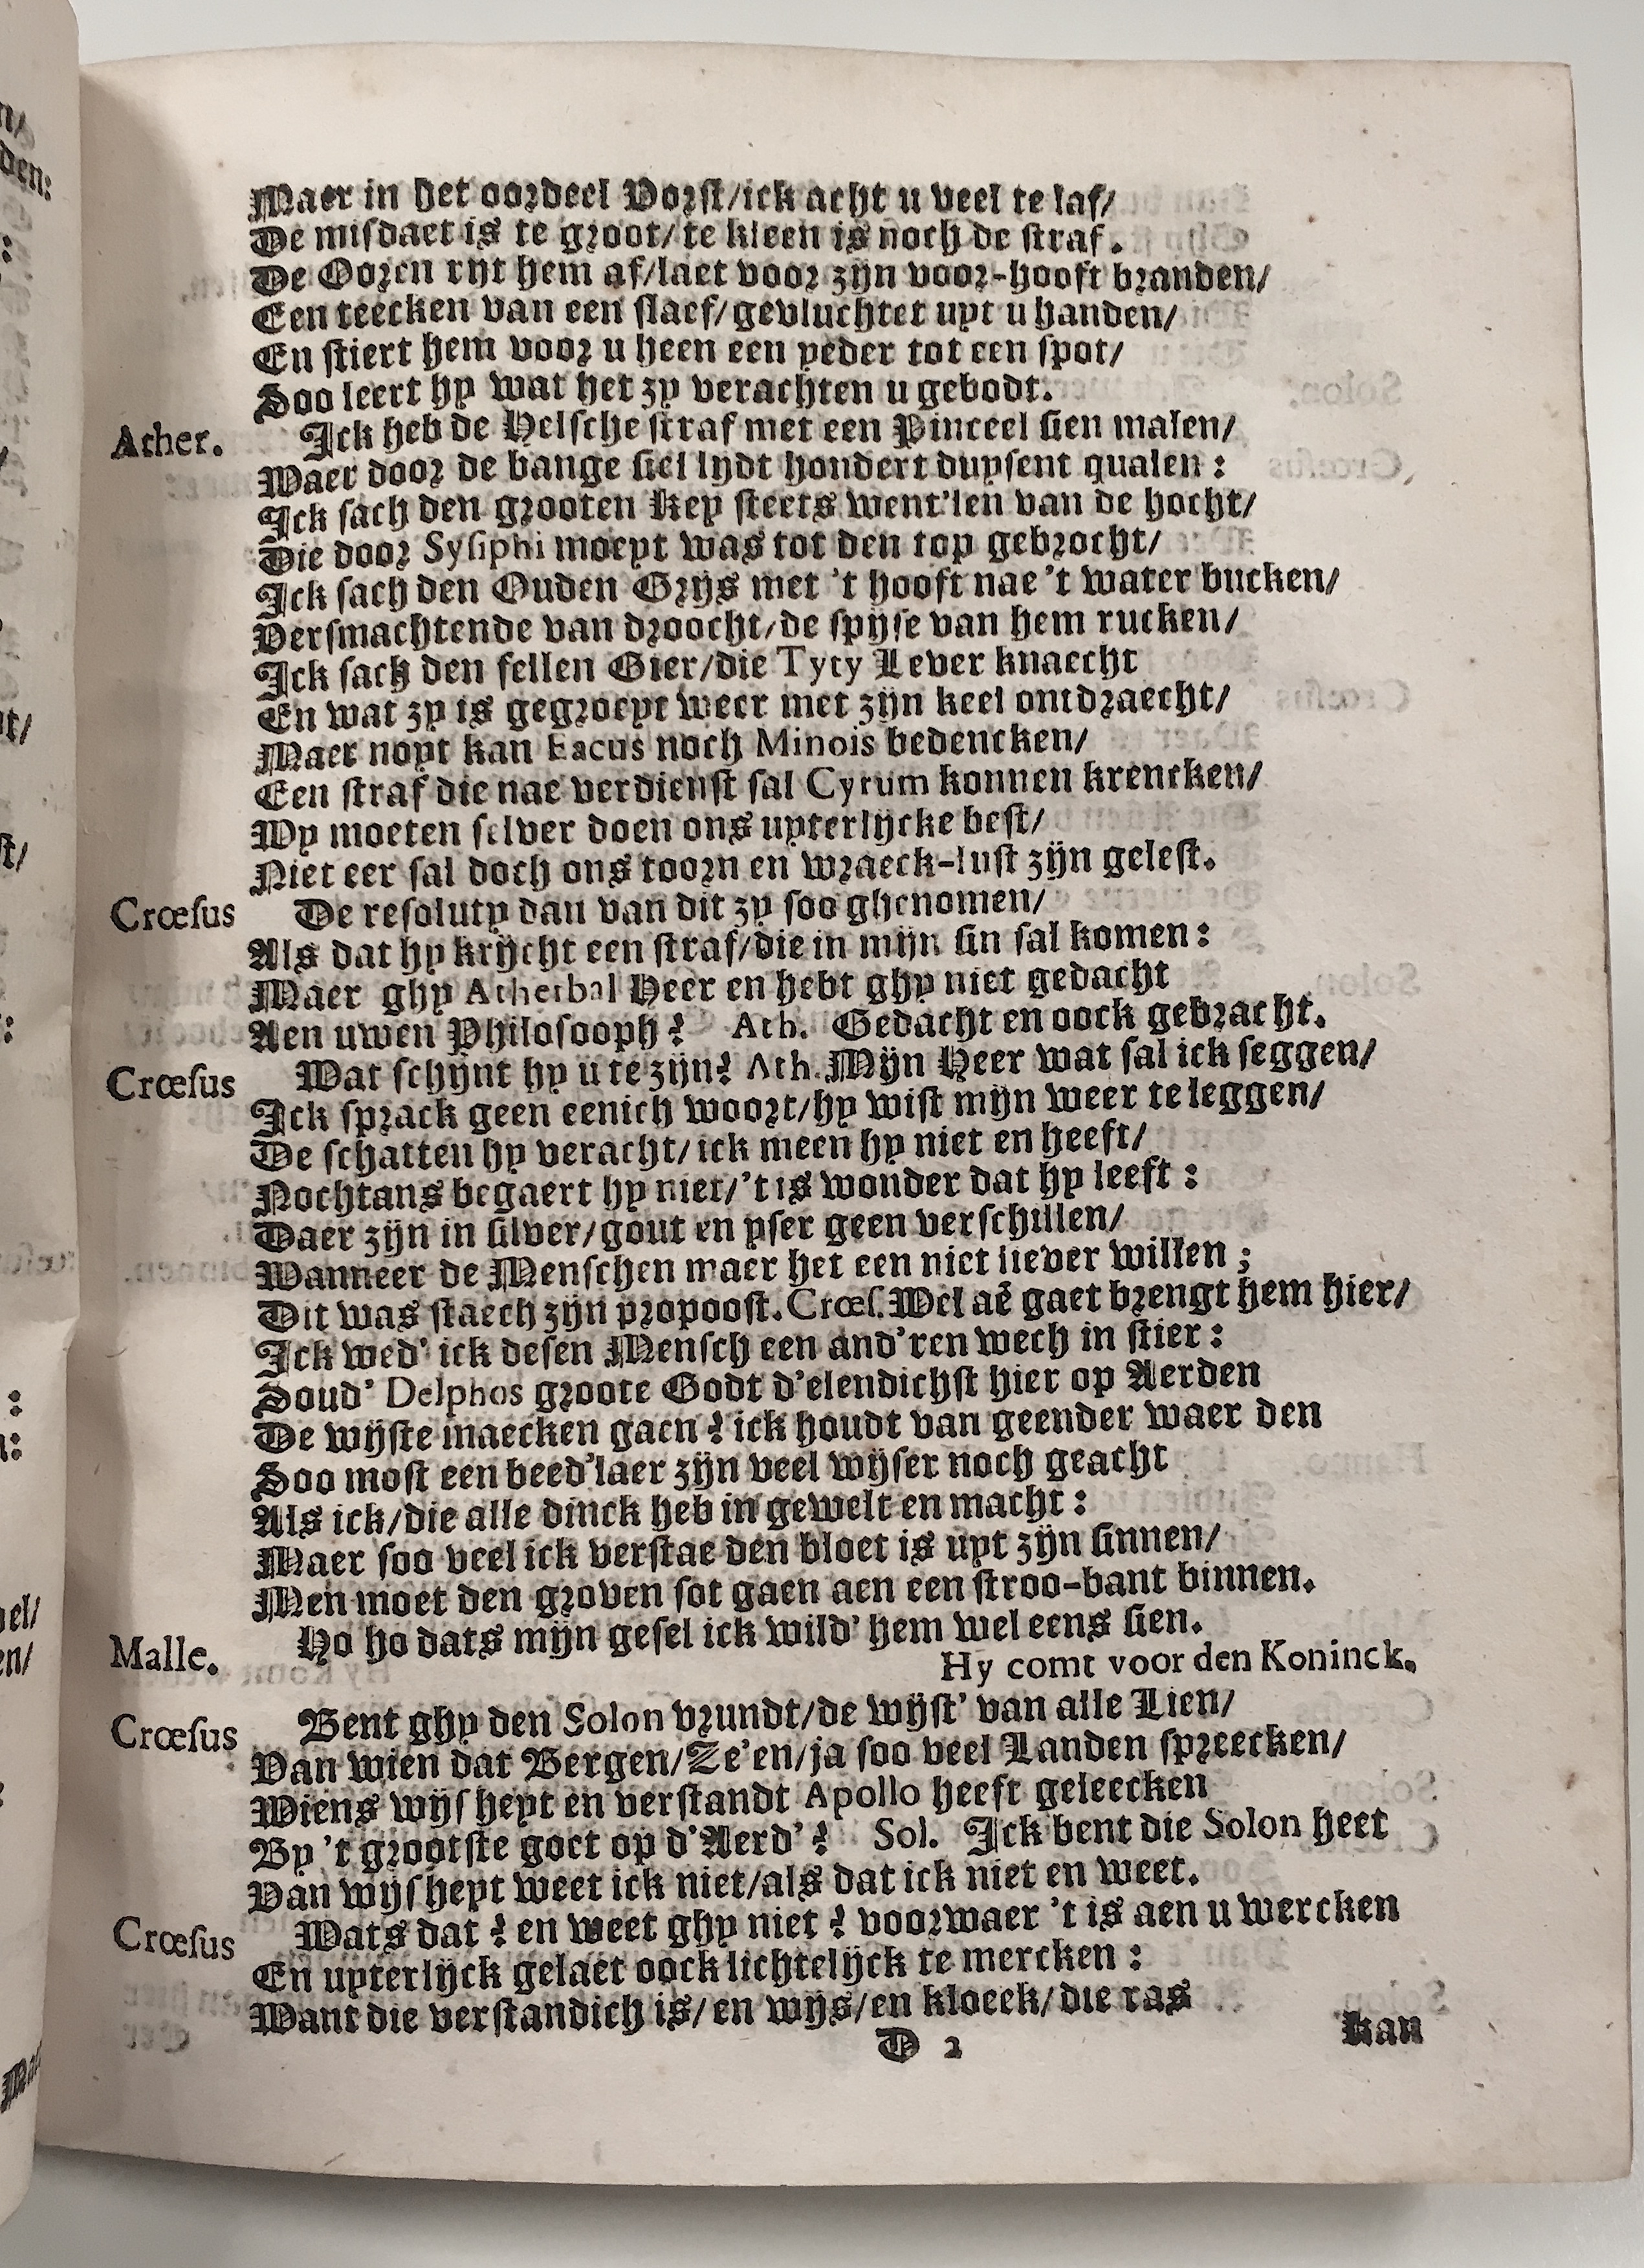 Maer in het oordeel Vorst/ick acht u veel te laf/
De misdaet is te groot/te kleen is noch de straf.
De Ooren rijt hem af/laet voor zijn voor-hooft branden/
Een teecken van een slaef/gevluchtet uyt u handen/
En stiert hem voor u heen een yeder tot een spot/
Soo leert hy wat het zy verachten u gebodt.
Ather. Ick heb de Helsche straf met een Pinceel sien malen/
Waer door de bange siel lijdt hondert duysent qualen:
Ick sach den grooten Key steets went'len van de hocht/
Die door Sysiphi moeyt was tot den top gebrocht/
Ick sach den Ouden Grijs met 't hooft nae 't water bucken/
Versmachtende van droocht/de spijse van hem rucken/
Ick sach den fellen Gier/die Tyty Lever knaecht
En wat zy is gegroeyt weer met zijn keel omdraecht/
Maer noyt kan Eacus noch Minois bedencken/
Een straf die nae verdienst sal Cyrum konnen krencken/
Wy moeten selver doen ons uyterlijcke best/
Niet eer sal doch ons toorn en wraeck-lust zijn gelest.
Crœsus De resoluty dan van dit zy soo ghenomen/
Als dat hy krijcht een straf/die in mijn sin sal komen:
Maer ghy Atherbal Heer en hebt ghy niet gedacht
Aen uwen Philosooph? Ath. Gedacht en oock gebracht.
Crœsus Wat schijnt hy u te zijn? Ath. Mijn Heer wat sal ick seggen/
Ick sprack geen eenich woort/hy wist mijn weer te leggen/
De schatten hy veracht/ick meen hy niet en heeft/
Nochtans begaert hy niet/'t is wonder dat hy leeft:
Daer zijn in silver/gout en yser geen verschillen/
Wanneer de Menschen maer het een niet liever willen;
Dit was staech zijn propoost. Crœs. Wel aẽ gaet brengt hem hier/
Ick wed' ick desen Mensch een and'ren wech in stier:
Soud' Delphos groote Godt d'elendichst hier op Aerden
De wijste maecken gaen? ick houdt van geender waer den
Soo most een beed'laer zijn veel wijser noch geacht
Als ick/die alle dinck heb in gewelt en macht:
Maer soo veel ick verstae den bloet is uyt zijn sinnen/
Men moet den groven sot gaen aen een stroo-bant binnen.
Malle. Ho ho dats mijn gesel ick wild' hem wel eens sien.
Hy comt voor den Koninck.
Crœsus Bent ghy den Solon vrundt/de wijst' van alle Lien/
Van wien dat Bergen/Ze'en/ja soo veel Landen spreecken/
Wiens wijsheyt en verstandt Apollo heeft geleecken
By 't grootste goet op d'Aerd'? Sol. Ick bent die Solon heet
Van wijsheyt weet ick niet/als dat ick niet en weet.
Crœsus Wats dat? en weet ghy niet? voorwaer 't is aen u wercken
En uyterlijck gelaet oock lichtelijck te mercken:
Want die verstandich is/en wijs/en kloeck/die ras
D 2 kan